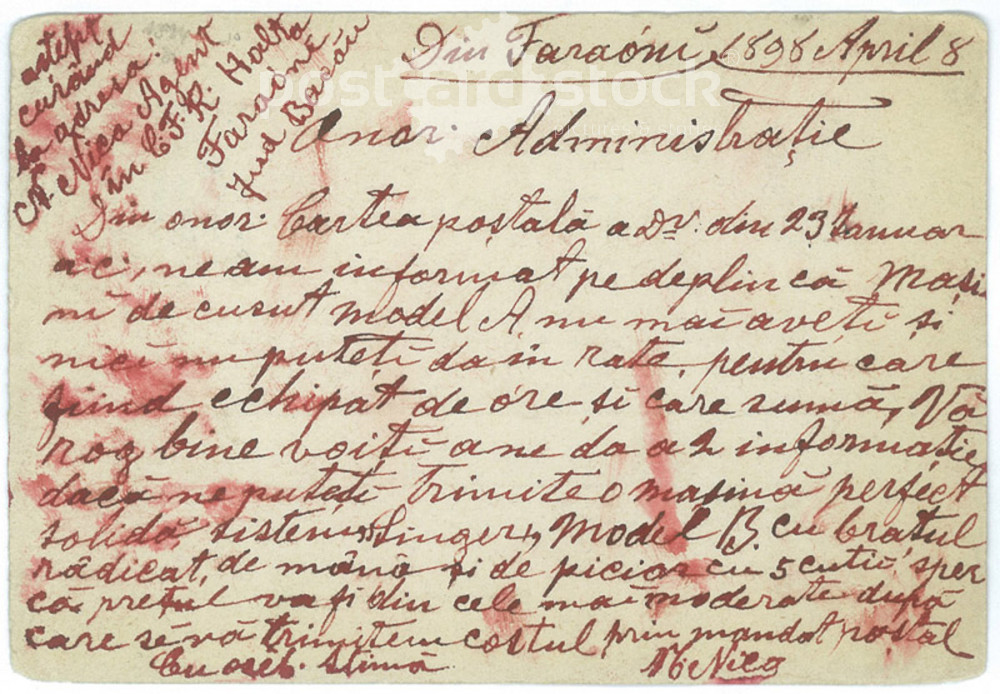 Din Faraóni, 1898 April 8
Onor. Administrație
Din onor. Cartea poștală a Dv. din 23 Ianuar
a c, ne am informat pe deplin că Mași
ni de cusut model A nu mai aveți și
nici nu puteți da în rate, pentru care
fiind echipat de óre și care sumă, Vă
rog bine voiți a ne da a 2 informație
dacă ne puteți trimite o mașină perfect
solidă sistem «Singer», Model B. cu brațul
rădicat, de mână și de picior cu 5 cutii, sper
că prețul va fi din cele mai moderate după
care se vă trimitem costul prin mandat poștal
Cu oseb. stimă
N Nica
aștept
curând
la adresa:
N. Nica Agent
în C.F.R. Halta
Faraóni
Jud Bacău
postcardstock